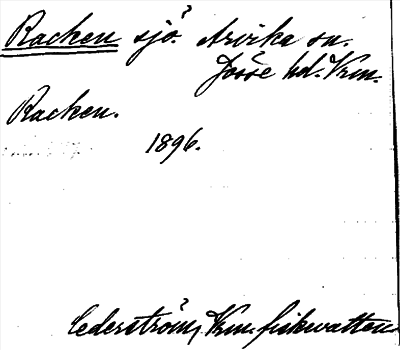 Racken sjö? Arvika sn.
Jösse hd. Vrm.
Racken.
1896.
Cederström, Vrm. fiskvatten